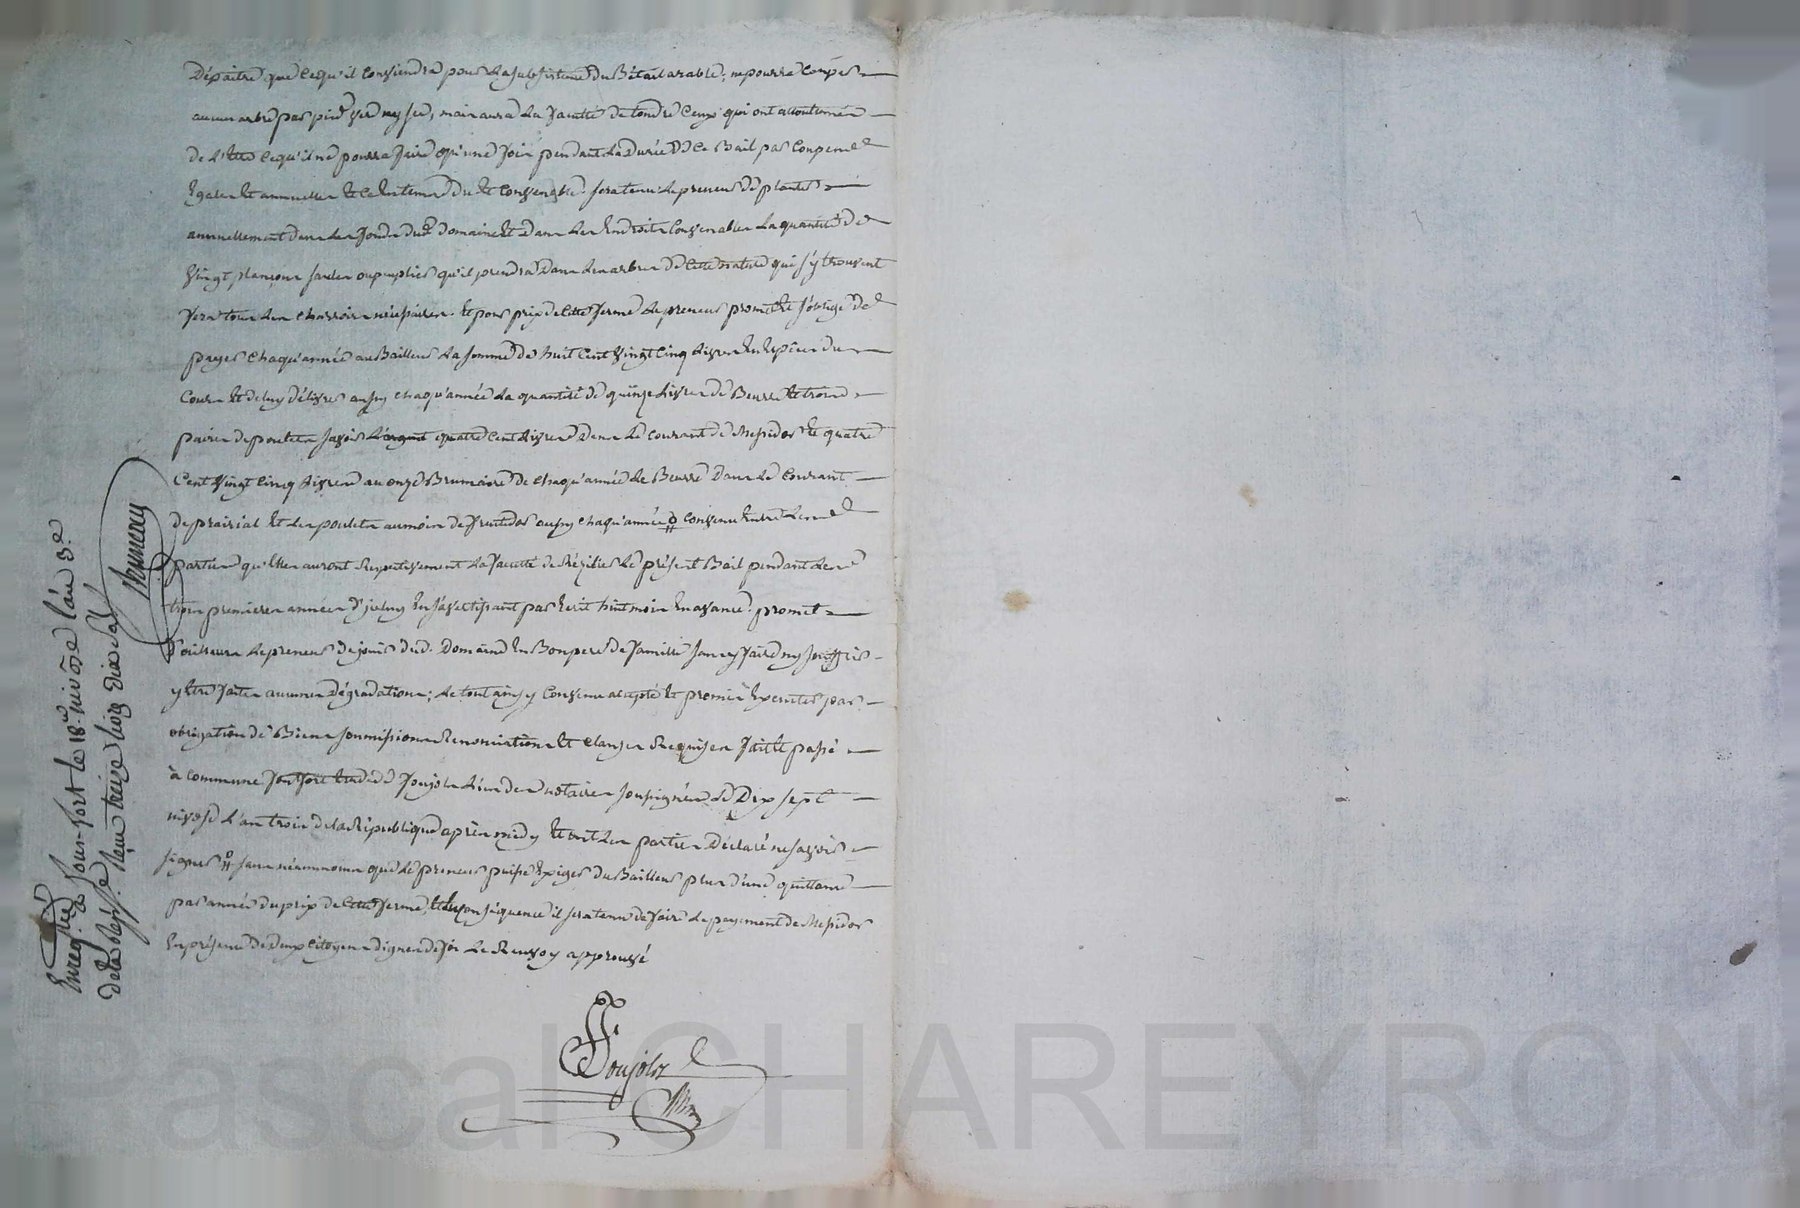 Dépaitre que ce qu'il conviendra pour la subsistence du Bétail arable; ne pourra couper
aucun arbre par pied verd ny sec, mais aura la faculté de tondre ceux qui ont accoutumés
de l'être ce qu'il ne pourra faire qu'une fois pendant la durée de ce Bail par coupes
Egales et annuelles et ce en tems du et convenable. sera tenu le preneur de planter
annuellement dans les fonds dud domaine et dans les endroits convenables la quantité de
vingt plançons saules ou peupliers qu'il prendra dans les arbres de cette nature qui s'y trouvent
fera tous les charrois nécessaires. Et pour prix de cette ferme le preneur promet et s'oblige de
payer chaqu'année au Bailleur la somme de huit cent vingt cinq livres en Espèces du
cours et de luy délivrer aussy chaqu'année la quantité de quinze livres de Beurre et trois
paires de poulets savoir l'argent quatre cent livres dans le courant de Messidor et quatre
cent vingt cinq livres au onze Brumaire de chaqu'année le Beurre dans le courant
de prairial et les poulets au mois de fructidor aussy chaqu'année convenu entre les
parties qu'elles auront respectivement la faculté de rézilier le présent Bail pendant les
trois premieres années d'iceluy en s'avertissant par Ecrit huit mois en avance. promet
d'ailleurs le preneur de jouir dud. Domaine en Bon pere de famille sans y faire ny souffrir
y être faites aucunes dégradations; le tout ainsy convenu accepté et promis Exécuter par
obligation de Biens soumissions Renonciations et clauses Requises fait et passé
à commune fonfort etude de foujols l'un des notaires soussignés le Dix sept
nivose l'an trois de la République après midy et ont les parties Déclaré ne savoir
signer sans néanmoins que le preneur puisse Exiger du Bailleur plus d'une quittance
par année du prix de cette ferme, et en conséquence il sera tenu de faire le payement de Messidor
En présence de deux citoyens dignes de foi le Renvoy approuvé
Foujols
Nre
Enreg.tré à foun-fort le 18.e nivôse l'an 3.e
de la Rép.e